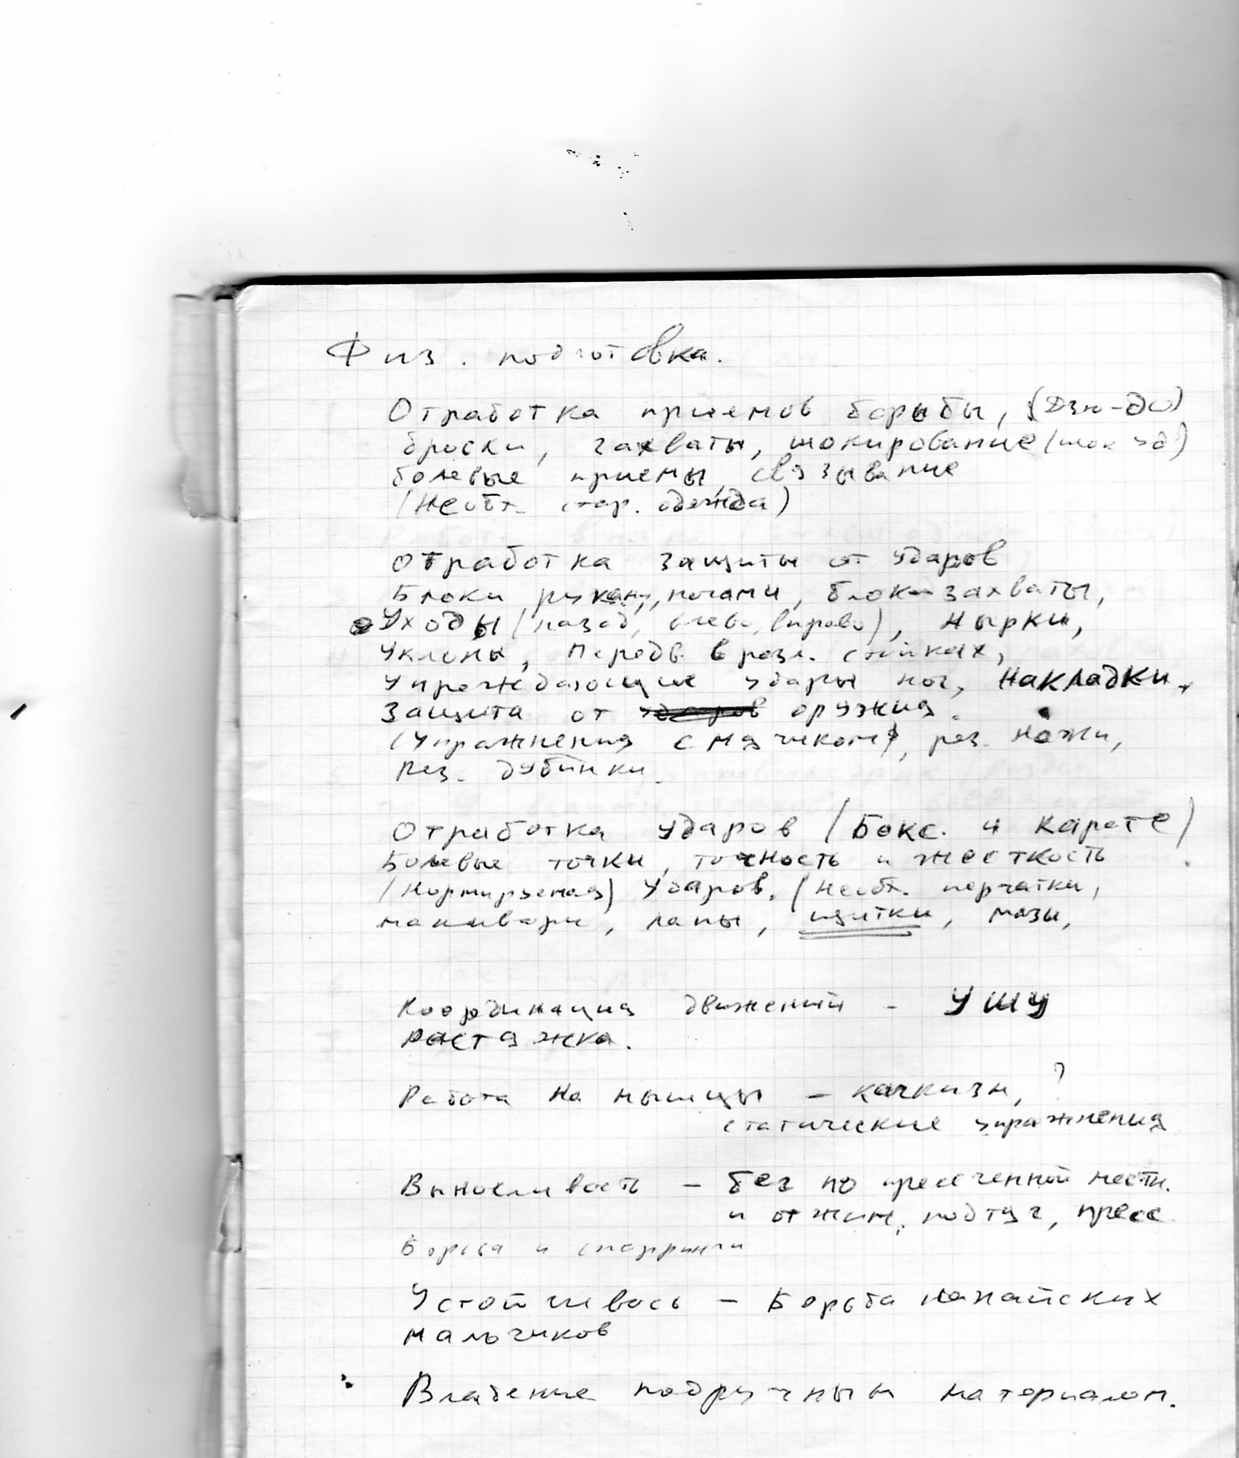 Физ. подготовка.
Отработка приемов борьбы, (Дзю-до)
броски, захваты, шокирование (шок уд)
болевые приемы, связывание
(Необх. стар. одежда)
Отработка защиты от ударов
Блоки руками, ногами, блоки захваты,
Уходы (назад, влево, вправо), нырки,
Уклоны, Передв. в разл. стойках,
Упреждающие удары ног, накладки.
Защита от оружия.
(Упражнения с мячиком, рез. ножи,
рез. дубинки.
Отработка ударов (Бокс. и Карате)
Болевые точки, точность и жесткость
(Нормируемая) Ударов. (Необх. перчатки,
макивары, лапы, щитки, мазы,
Координация движений - УШУ
растяжка.
Работа на мышцы - качкизм, ?
статические упражнения
Выносливость - бег по пресеченной местн.
и отжим, подтяг, пресс
Борьба и спарринги
Устойчивось - Борьба нанайских
мальчиков
Владение подручным материалом.